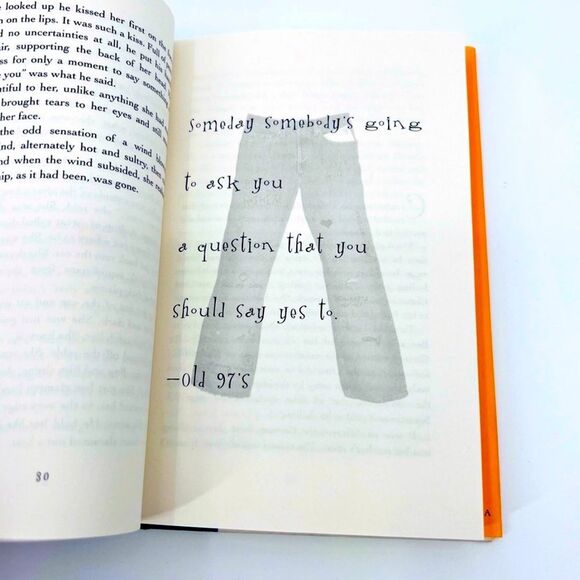 looked up he kissed her first on the
on the lips. It was such a kiss. Full of
no uncertainties at all, he put his
supporting the back of her head,
for only a moment to say something
you" was what he said.
to her, unlike anything she had
brought tears to her eyes and still
her face.
the odd sensation of a wind
alternately hot and sultry, then
when the wind subsided, she
as it had been, was gone.
30
someday somebody's going
to ask you
a question that you
should say yes to.
—old 97's
A